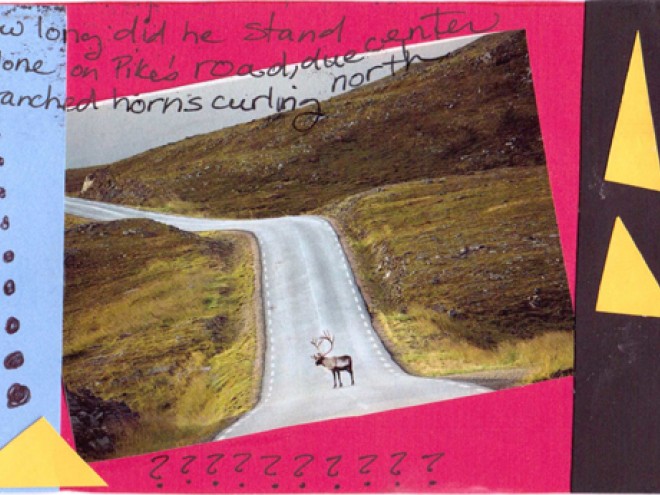 w long did he stand
lone on Pike's road, due center
anched horns curling north
? ? ? ? ? ? ? ? ? ?